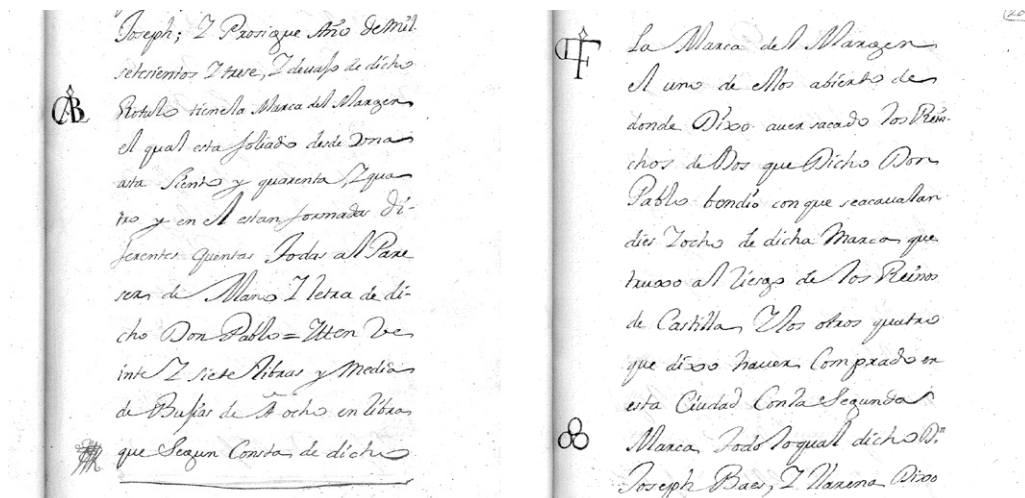 Joseph; Z Prosigue Año de mil
setesientos Z trese, Z devajo de dicho
Rotulo tiene la Marca del Margen
el qual esta foliado desde Vona
asta siento y quarenta, Z qua
tro y en el estan formadas di-
ferentes quentas Todas al Pare
ser de Mano Z letra de di-
cho Don Pablo = Itten Ve
inte Z siete libras y Media
de Bujias de A ocho en libra
que Segun Consta de dicho
La Marca del Margen
el uno de ellos abierto de
donde Dixo aver sacado los
chos de Dos que Dicho Don
Pablo bondio con que seacavalan
dies Z ocho de dicha Marca que
truxo al Riesgo de los Reinos
de Castilla, Z los otros quatro
que dixo haver Comprado en
esta Ciudad Con la Segunda
Marca Todo lo qual dicho Dn
Joseph Baes, Z Llarena Dixo